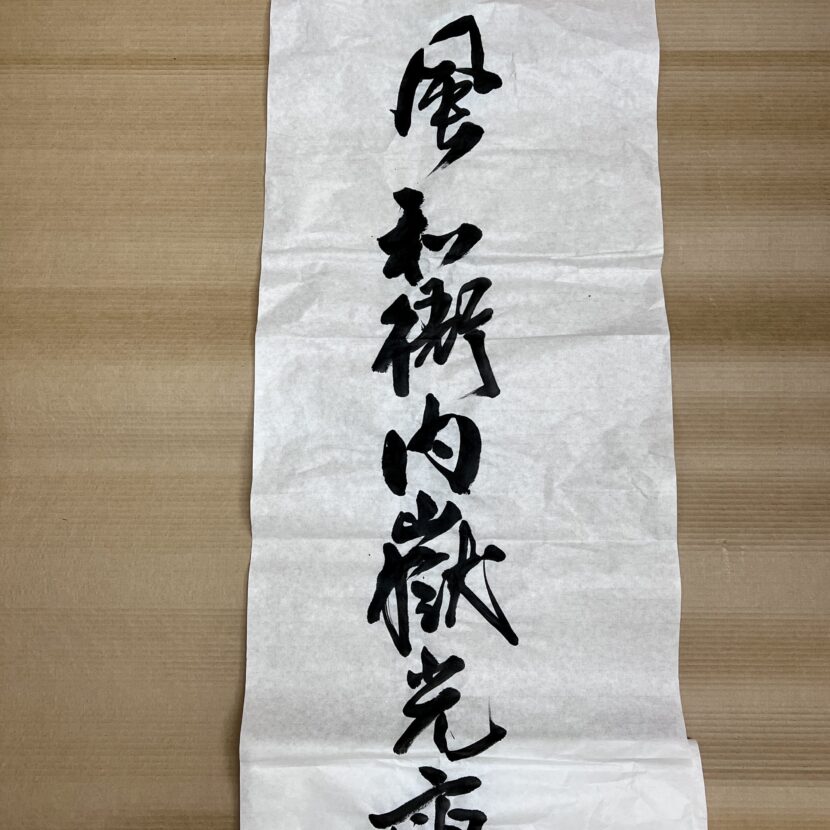 風和内嶽光